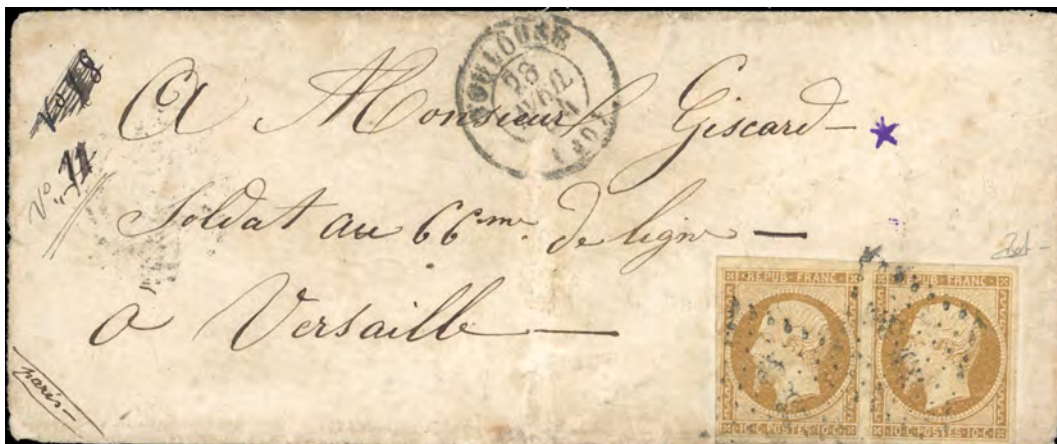 TOULOUSE
28
AVRIL
A Monsieur Giscard
Soldat au 66me de ligne
a Versaille
N° 11
paris
REPUB-FRANC
10·C·POSTES·10·C
REPUB-FRANC
10·C·POSTES·10·C